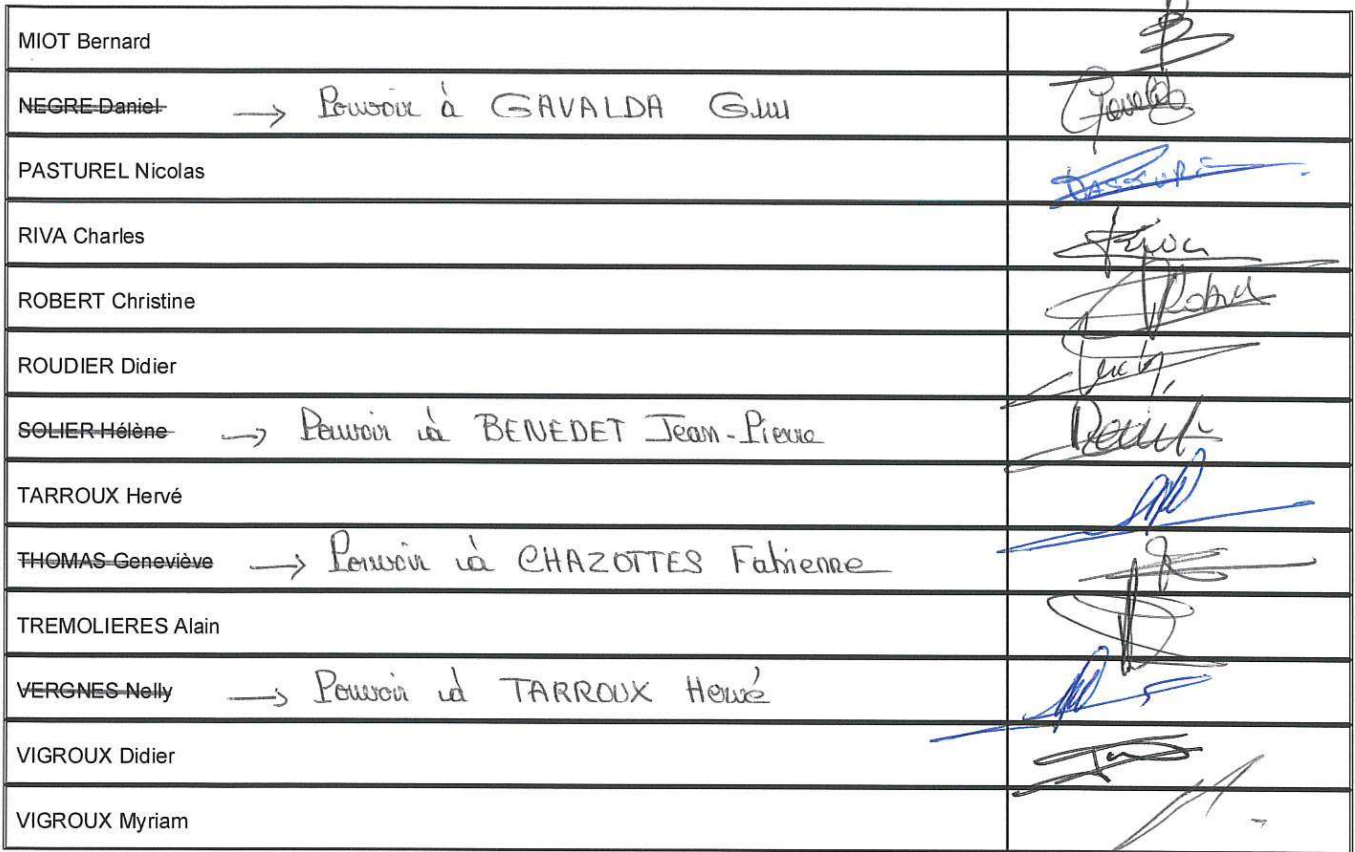 MIOT Bernard
NEGRE Daniel → Pouvoir à GAVALDA Guy
PASTUREL Nicolas
RIVA Charles
ROBERT Christine
ROUDIER Didier
SOLIER Hélène → Pouvoir à BENEDET Jean-Pierre
TARROUX Hervé
THOMAS Geneviève → Pouvoir à CHAZOTTES Fabienne
TREMOLIERES Alain
VERGNES Nelly → Pouvoir à TARROUX Hervé
VIGROUX Didier
VIGROUX Myriam